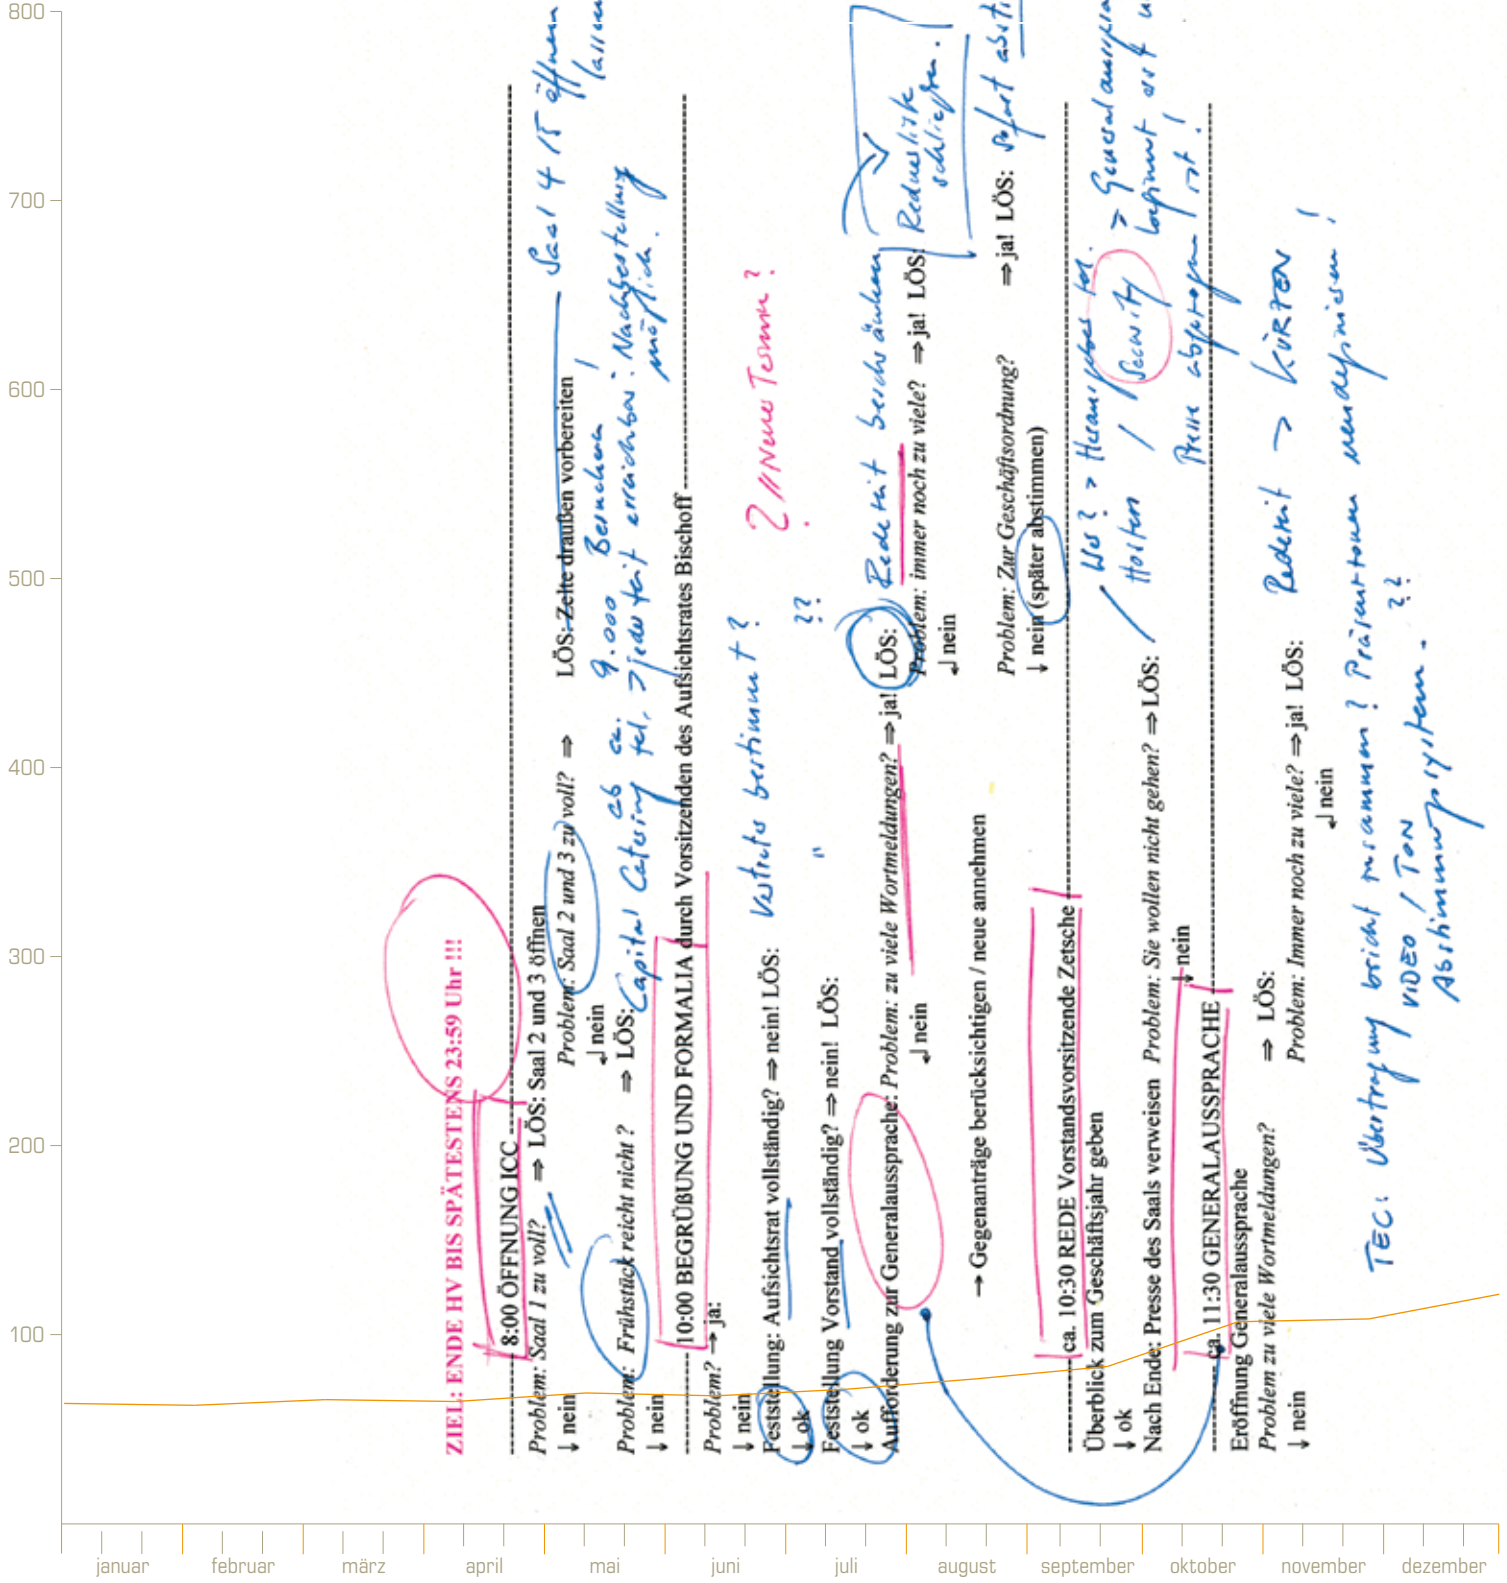 800
700
600
500
400
300
200
100
januar
februar
märz
april
mai
juni
juli
august
september
oktober
november
dezember
ZIEL: ENDE HV BIS SPÄTESTENS 23:59 Uhr !!!
8:00 ÖFFNUNG ICC
Problem: Saal 1 zu voll? ⇒ LÖS: Saal 2 und 3 öffnen
↓ nein Problem: Saal 2 und 3 zu voll? ⇒ LÖS: Zelte draußen vorbereiten
Saal 4 15 öffnen lassen
↲ nein
ca. 9.000 Besucher!
Problem: Frühstück reicht nicht? ⇒ LÖS: Capital Catering tel. > jederzeit erreichbar: Nachbestellung möglich.
↓ nein
10:00 BEGRÜßUNG UND FORMALIA durch Vorsitzenden des Aufsichtsrates Bischoff
Problem? → ja:
↓ nein
Feststellung: Aufsichtsrat vollständig? ⇒ nein! LÖS: Vertreter bestimmt?
// Neuer Termin?
↓ ok
Feststellung Vorstand vollständig? ⇒ nein! LÖS: " ??
↓ ok
Aufforderung zur Generalaussprache: Problem: zu viele Wortmeldungen? ⇒ ja! LÖS: Redezeit beschränken
↲ nein Problem: immer noch zu viele? ⇒ ja! LÖS: Rednerliste schließen.
↲ nein
→ Gegenanträge berücksichtigen / neue annehmen
Problem: Zur Geschäftsordnung? ⇒ ja! LÖS: sofort
↓ nein (später abstimmen)
ca. 10:30 REDE Vorstandsvorsitzende Zetsche
Überblick zum Geschäftsjahr geben
↓ ok
Nach Ende: Presse des Saals verweisen Problem: Sie wollen nicht gehen? ⇒ LÖS: / Wer?
Hosten / Security
beginnt erst
Presse abgezogen ist!
↓ nein
ca. 11:30 GENERALAUSSPRACHE
Eröffnung Generalaussprache
Problem zu viele Wortmeldungen? ⇒ LÖS: Redezeit > KÜRZEN
↓ nein Problem: Immer noch zu viele? ⇒ ja! LÖS:
↲ nein
TEC: Übertragung bricht zusammen? Präsentationen
VIDEO / TON ??
Abstimmungssystem.